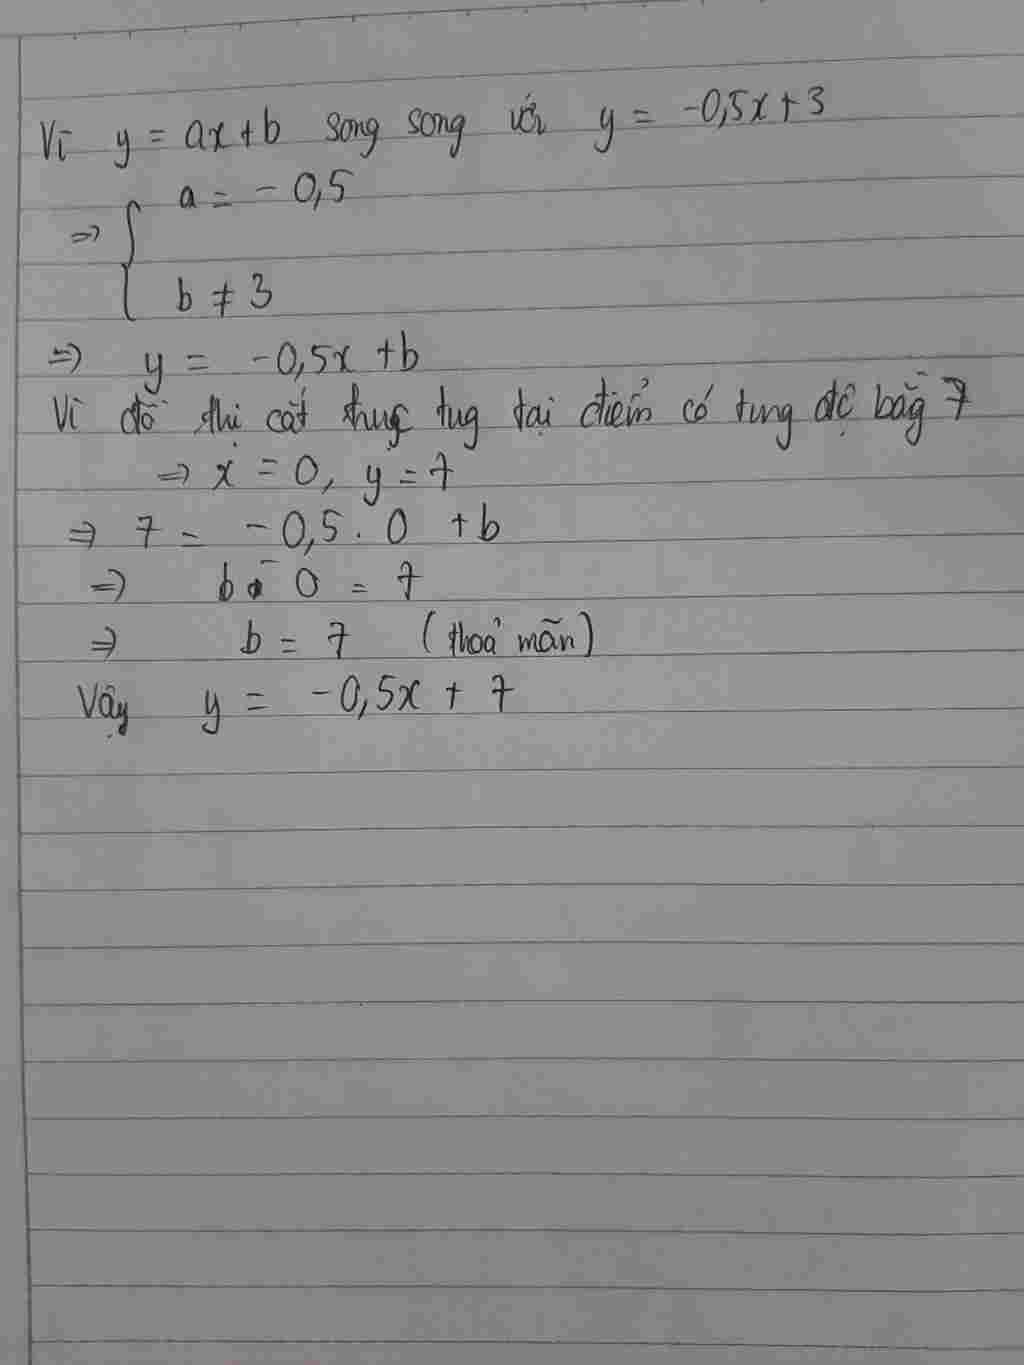 Vì y = ax + b song song với y = -0,5x + 3
=> { a = -0,5
b ≠ 3
=> y = -0,5x + b
Vì đồ thị cắt trục tug tại điểm có tung độ bằg 7
=> x = 0, y = 7
=> 7 = -0,5 . 0 + b
=> b - 0 = 7
=> b = 7 (thoả mãn)
Vậy y = -0,5x + 7